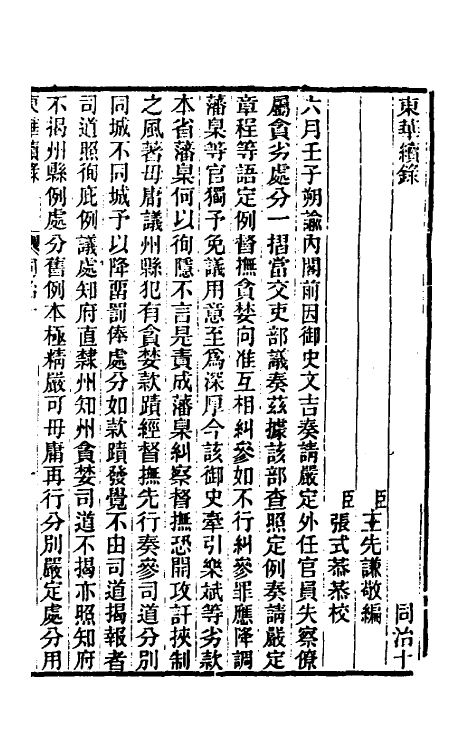 東華續錄 同治十
臣王先謙敬編
臣張式恭恭校
六月壬子朔諭內閣前因御史文吉奏請嚴定外任官員失察僚
屬貪劣處分一摺當交吏部議奏茲據該部查照定例奏請嚴定
章程等語定例督撫貪婪向准互相糾參如不行糾參罪應降調
藩臬等官獨予免議用意至為深厚今該御史牽引樂斌等劣款
本省藩臬何以徇隱不言是責成藩臬糾察督撫恐開攻訐挾制
之風著毋庸議州縣犯有貪婪款蹟經督撫先行奏參司道分別
同城不同城予以降留罰俸處分如款蹟發覺不由司道揭報者
司道照徇庇例議處知府直隸州知州貪婪司道不揭亦照知府
不揭州縣例處分舊例本極精嚴可毋庸再行分別嚴定處分用